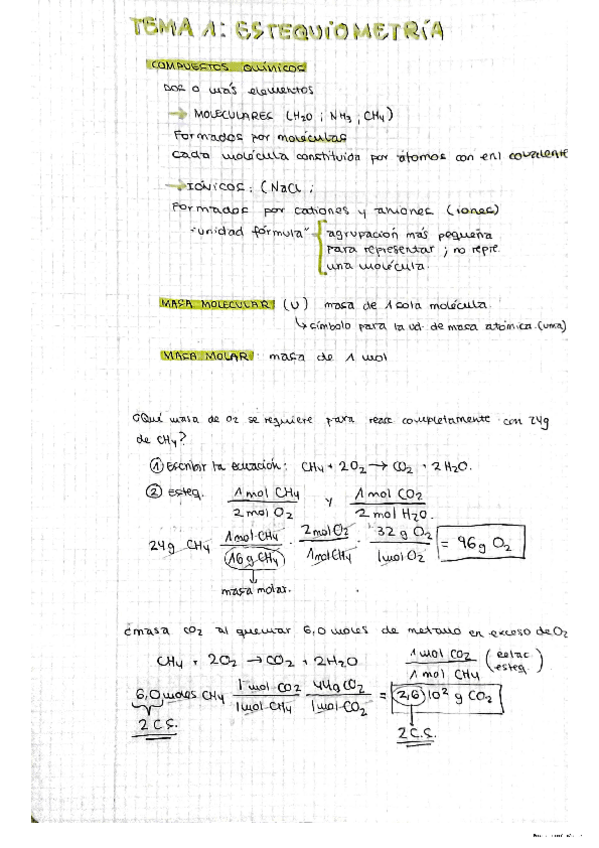 TEMA 1: ESTEQUIOMETRÍA
COMPUESTOS QUÍMICOS
Dos o más elementos
→ MOLECULARES (H2O ; NH3 ; CH4)
Formados por moléculas
cada molécula constituida por átomos con enl covalente
→ IÓNICOS: (NaCl ;
Formados por cationes y aniones (iones)
"unidad fórmula" { agrupación más pequeña
para representar ; no repre.
una molécula.
MASA MOLECULAR (U) masa de 1 sola molécula.
↳ símbolo para la ud. de masa atómica (uma)
MASA MOLAR: masa de 1 mol
¿Qué masa de O2 se requiere para reacc completamente con 24g
de CH4?
① Escribir la ecuación: CH4 + 2O2 → CO2 + 2H2O.
② esteq. 1 mol CH4 / 2 mol O2 y 1 mol CO2 / 2 mol H2O.
24g CH4 · 1 mol CH4 / 16 g CH4 · 2 mol O2 / 1 mol CH4 · 32 g O2 / 1 mol O2 = 96 g O2
↓
masa molar.
¿masa CO2 al quemar 6,0 moles de metano en exceso de O2
CH4 + 2O2 → CO2 + 2H2O 1 mol CO2 / 1 mol CH4 (relac esteq.)
6,0 moles CH4 1 mol CO2 / 1 mol CH4 44g CO2 / 1 mol CO2 = 2,6 10² g CO2
2 C.S. 2 C.S.